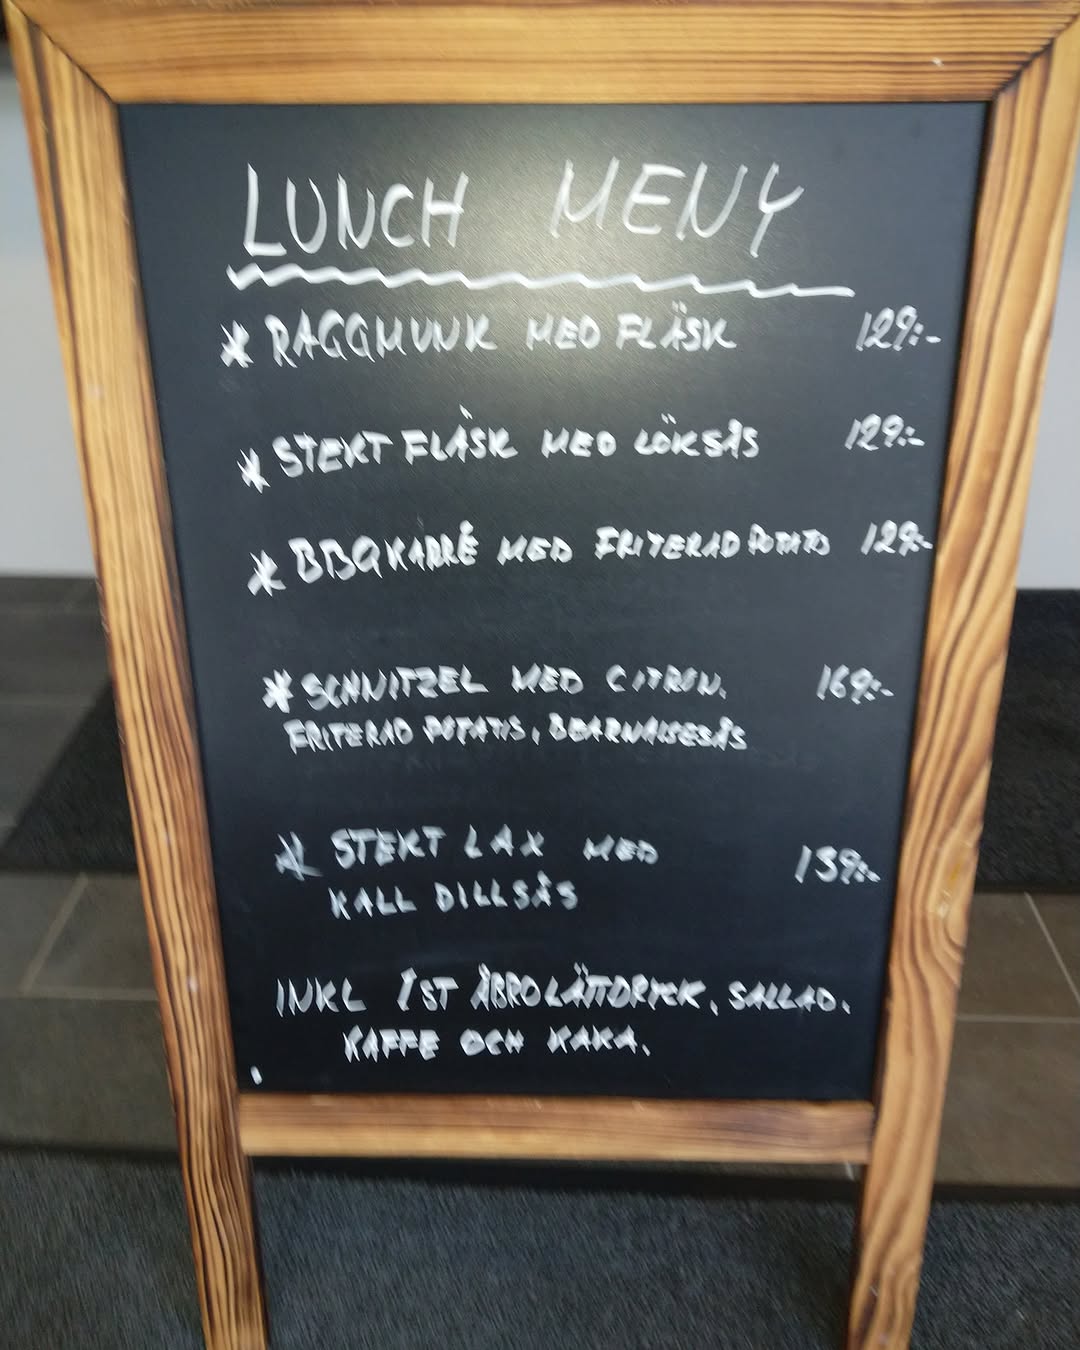 LUNCH MENY
* RAGGMUNK MED FLÄSK 129:-
* STEKT FLÄSK MED LÖKSÅS 129:-
* BBQ KARRÉ MED FRITERAD POTATIS 129:-
* SCHNITZEL MED CITRON, 169:-
FRITERAD POTATIS, BEARNAISESÅS
* STEKT LAX MED 159:-
KALL DILLSÅS
INKL 1ST ÅBRO LÄTTDRYCK, SALLAD,
KAFFE OCH KAKA.